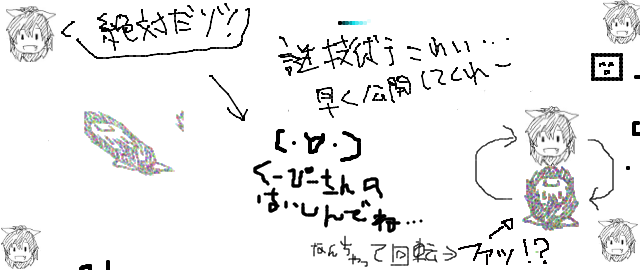 絶対だゾ!!
謎技ばずこわい…
早く公開してくれー
(・∀・)
くーぴーちんの
はいしんでね…
なんちゃって回転→
ファッ!?